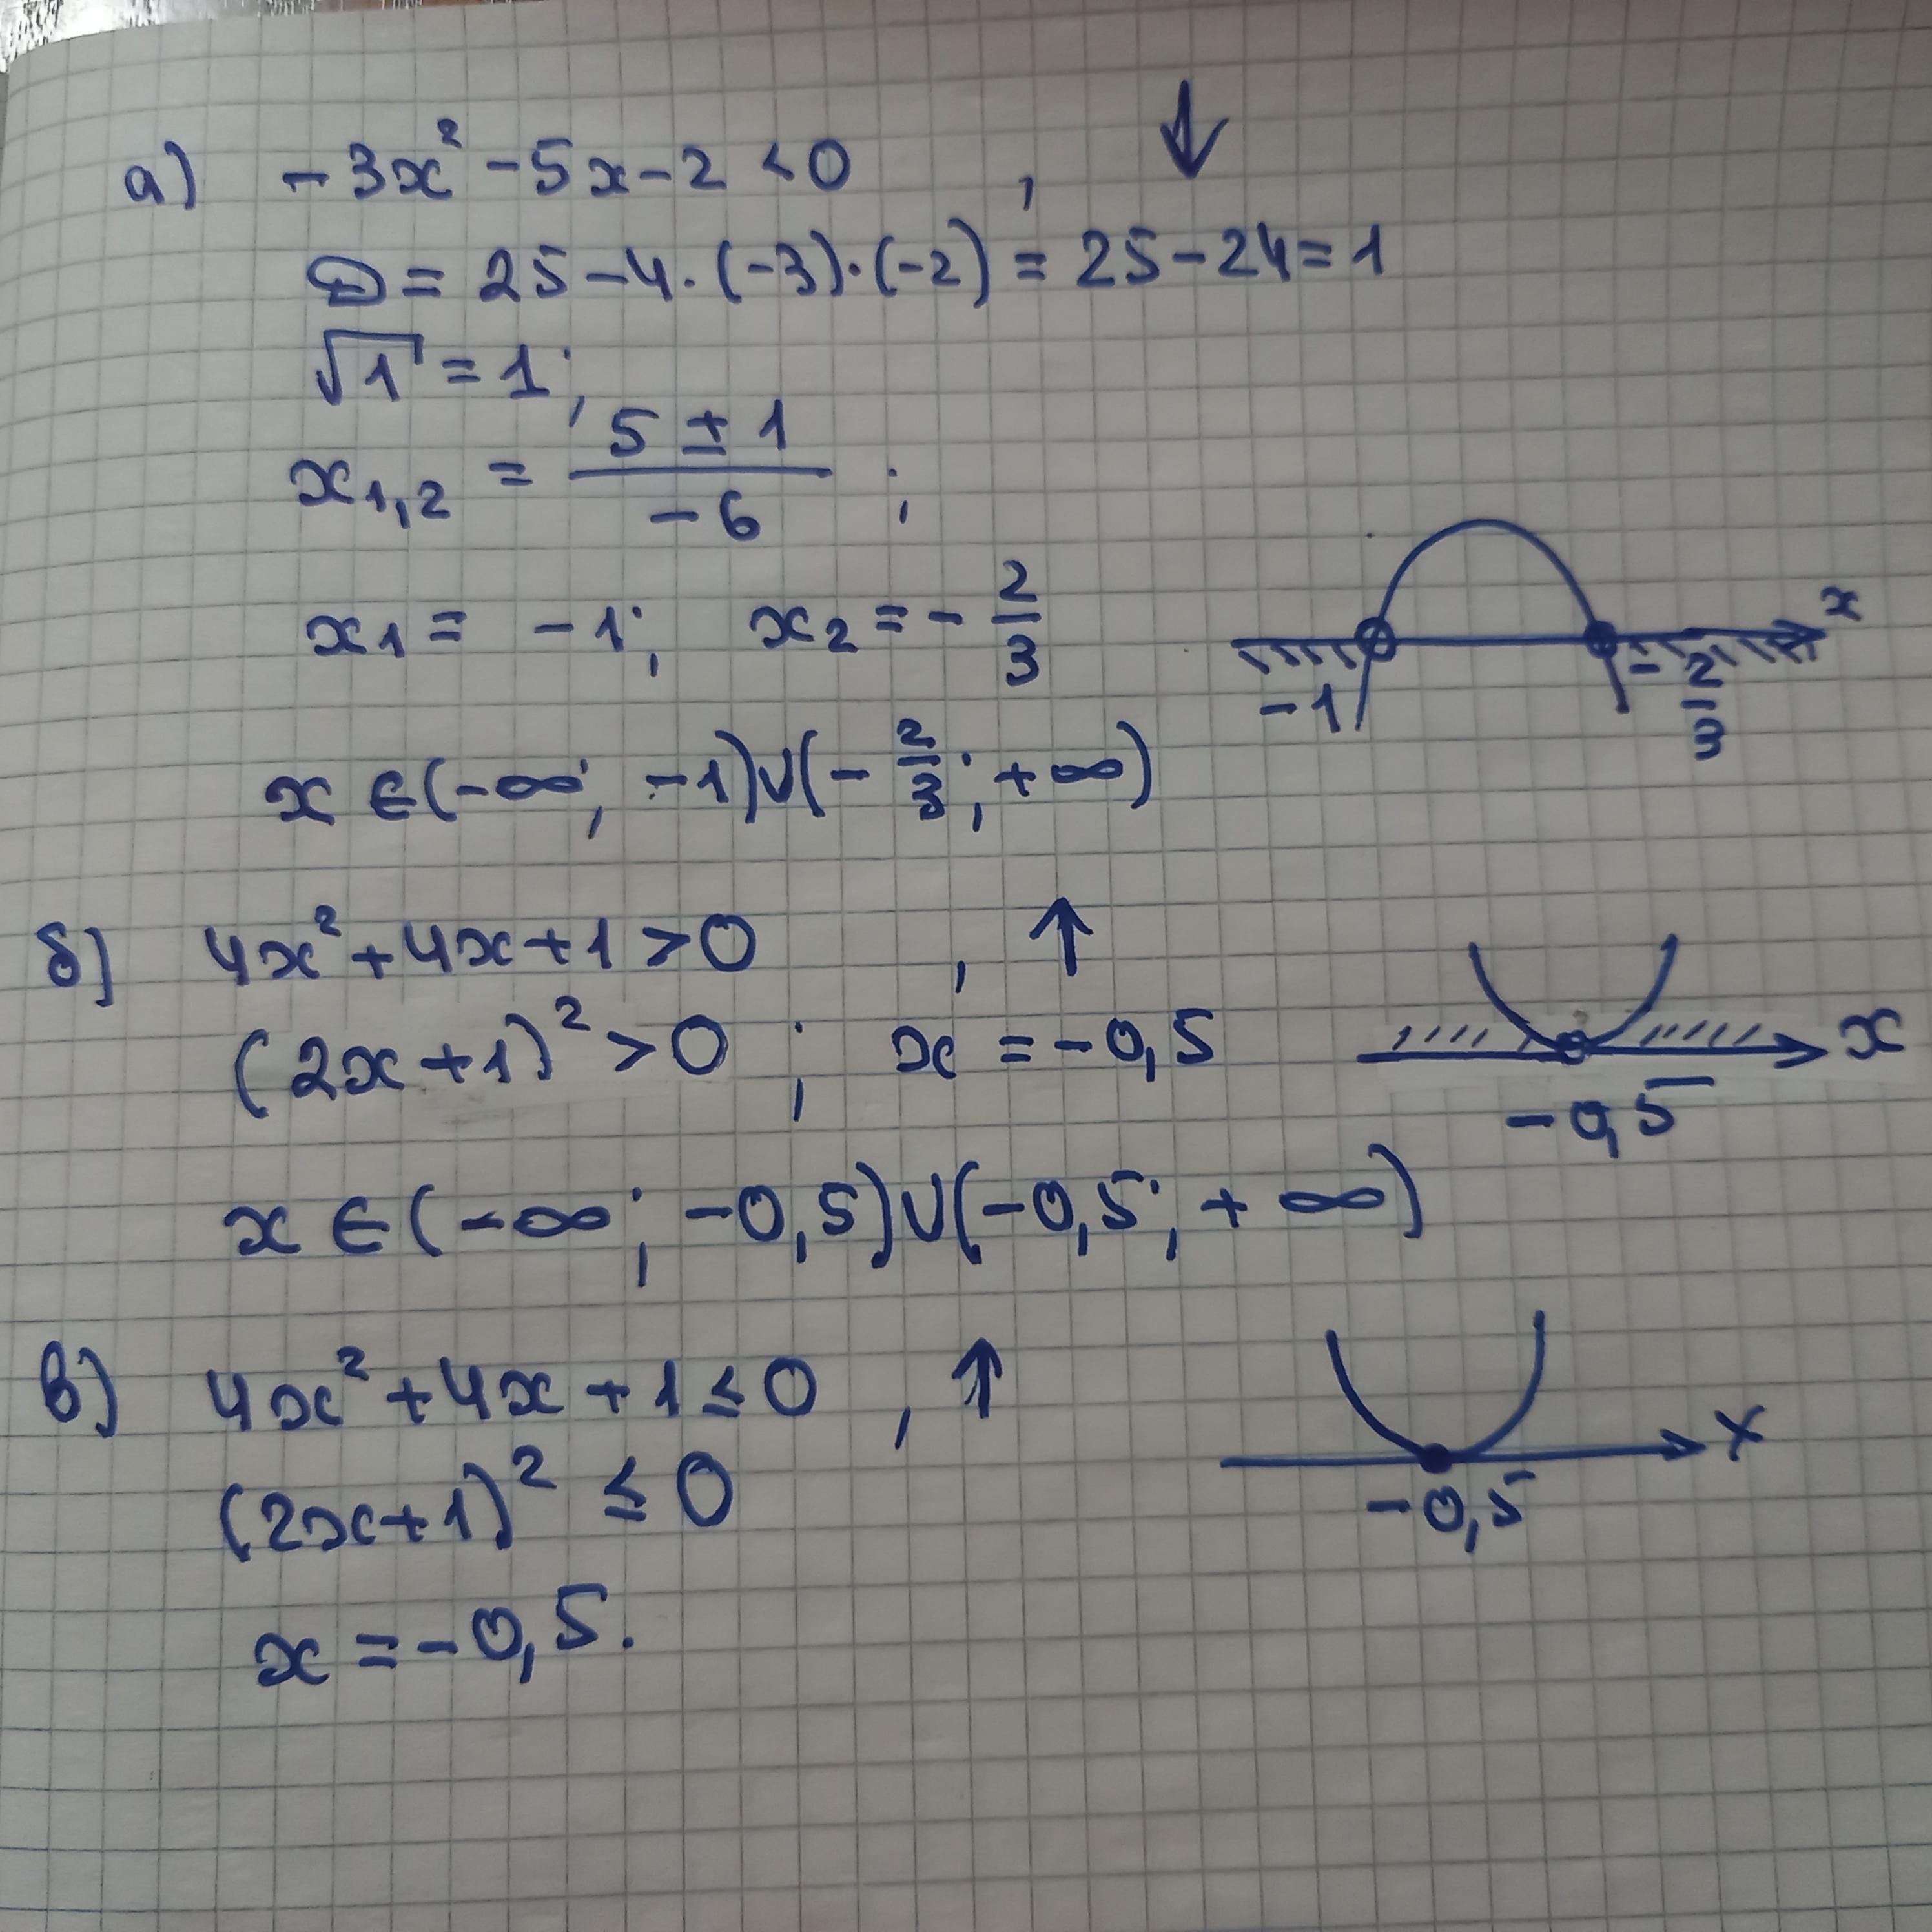 а) -3x² - 5x - 2 < 0 , ↓
D = 25 - 4·(-3)·(-2) = 25 - 24 = 1
√1 = 1;
x₁,₂ = (5 ± 1)/(-6) ;
x₁ = -1; x₂ = -2/3
x
-1 -2/3
x ∈ (-∞; -1) ∪ (-2/3; +∞)
б) 4x² + 4x + 1 > 0 , ↑
(2x + 1)² > 0 ; x = -0,5
x
-0,5
x ∈ (-∞; -0,5) ∪ (-0,5; +∞)
в) 4x² + 4x + 1 ≤ 0 , ↑
x
(2x + 1)² ≤ 0
-0,5
x = -0,5.